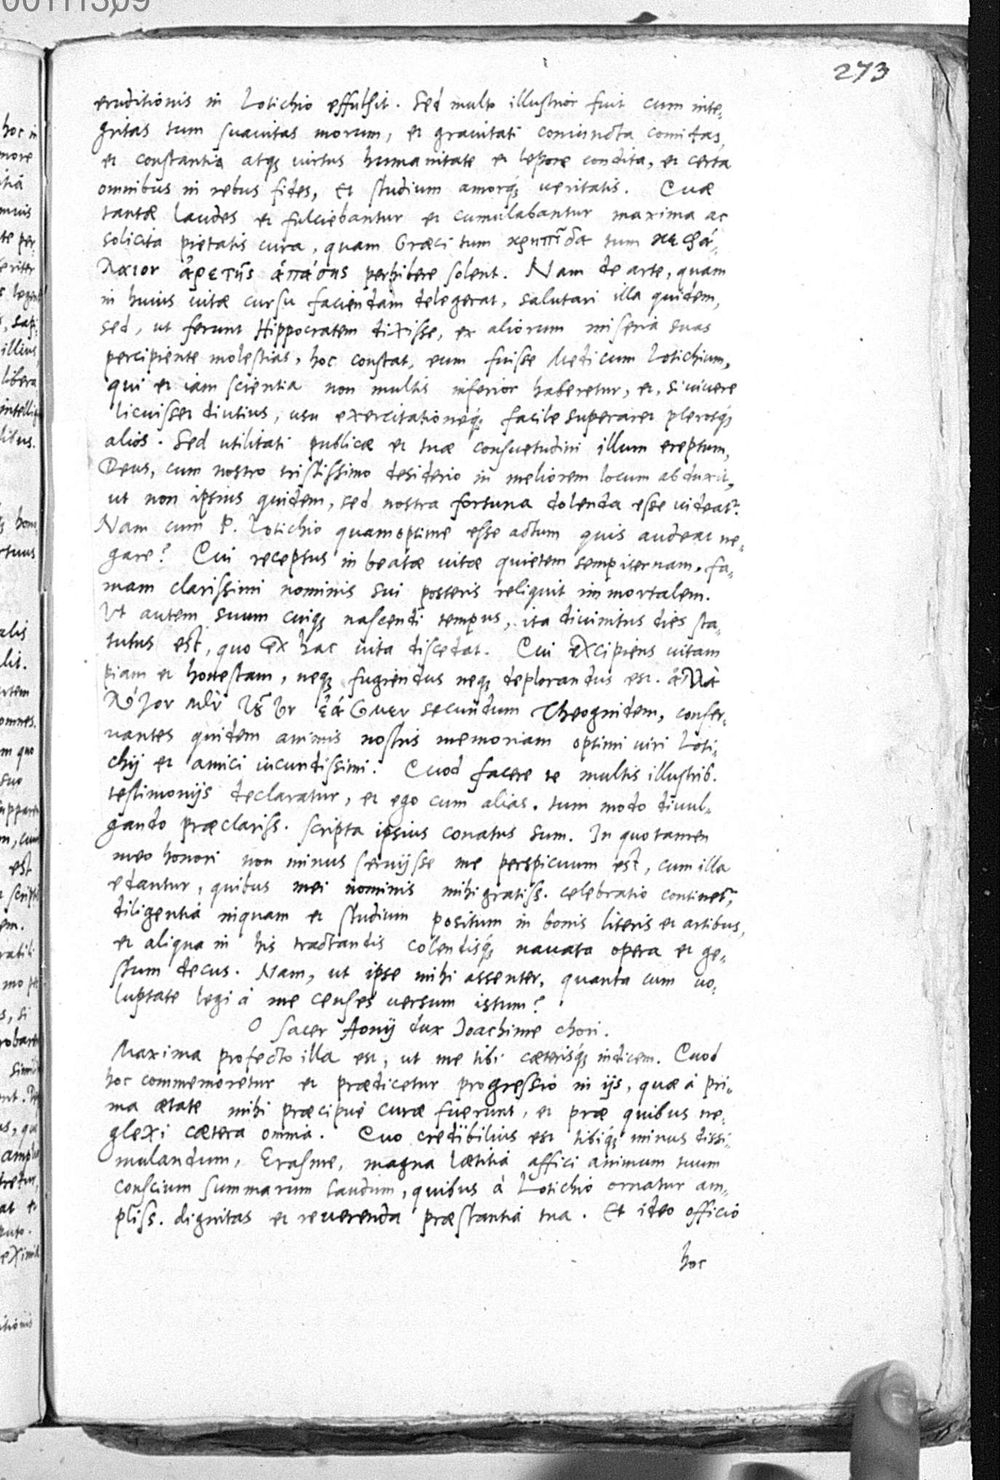 00111309
273
eruditionis in Lotichio effulsit. Sed multo illustrior fuit cum inte,
gritas tum suavitas morum, et gravitati coniuncta comitas,
et constantia atq; virtus humanitate et lepore condita, et certa
omnibus in rebus fides, Et studium amorq; veritatis. Quæ
tantæ laudes et fulciebantur et cumulabantur maxima ac
solicita pietatis cura, quam Græci tum κρηπῖδα tum κεφά,
λαιον ἀρετῆς ἁπάσης perhibere solent. Nam de arte, quam
in huius vitæ cursu faciendam delegerat, salutari illa quidem,
sed, ut ferunt Hippocratem dixisse, ex aliorum miseria suas
percipiente molestias, hoc constat, eum fuisse Medicum Lotichium,
qui et iam scientia non multis inferior haberetur, et, si vivere
licuisset diutius, usu exercitationeq; facile superaret plerosq;
alios. Sed utilitati publicæ et tuæ consuetudini illum ereptum,
Deus, cum nostro tristissimo desiderio in meliorem locum abduxit,
ut non ipsius quidem, sed nostra fortuna dolenda esse videat^r.
Nam cum P. Lotichio quamoptime esse actum quis audeat ne,
gare? Qui receptus in beatæ vitæ quietem sempiternam, fa,
mam clarissimi nominis sui posteris reliquit immortalem.
Ut autem suum cuiq; nascendi tempus, ita divinitus dies sta,
tutus est, quo ex hac vita discedat. Qui excipiens vitam
piam et honestam, neq; fugiendus neq; deplorandus est. ἀλλὰ
secundum Theognidem, conser,
vantes quidem animis nostris memoriam optimi viri Loti,
chij et amici iucundissimi. Quod facere te multis illustrib.
testimonijs declaratur, et ego cum alias, tum modo divul,
gando præclariss. scripta ipsius conatus sum. In quo tamen
meo honori non minus servijsse me perspicuum est, cum illa
edantur, quibus mei nominis mihi gratiss. celebratio continet^r,
diligentia niquam et studium positum in bonis literis et artibus,
et aliqua in his tractandis colendisq; navata opera et ge,
stum decus. Nam, ut ipse mihi assenter, quanta cum vo,
luptate legi à me censes versum istum?
O sacer Aonij dux Ioachime chori.
Maxima profecto illa est, ut me tibi cæterisq; indicem. Quod
hoc commemoretur et prædicetur progressio in ijs, quæ à pri,
ma ætate mihi præcipuè curæ fuerunt, et præ quibus ne,
glexi cætera omnia. Quo credibilius est tibiq; minus dissi,
mulandum, Erasme, magna lætitia affici animum tuum
conscium summarum laudum, quibus à Lotichio ornatur am,
pliss. dignitas et reverenda præstantia tua. Et ideo officio
hoc